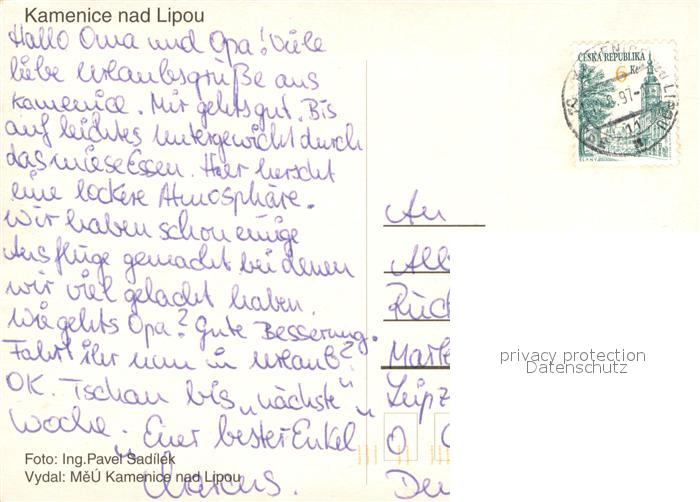 Kamenice nad Lipou
Hallo Oma und Opa! Viele
liebe Urlaubsgrüße aus
Kamenice. Mir gehts gut. Bis
auf leichtes Untergewicht durch
das miese Essen. Hier herscht
eine lockere Atmosphäre.
Wir haben schon einige
Ausflüge gemacht bei denen
wir viel gelacht haben.
Wie gehts Opa? Gute Besserung.
Fahrt ihr nun in Urlaub?
OK. Tschau bis „nächste"
Woche. Euer bester Enkel
„Marcus."
Foto: Ing.Pavel Sadílek
Vydal: MěÚ Kamenice nad Lipou
ČESKÁ REPUBLIKA
6 Kč
97
An
All
Rück
Marte
Leipz
O
Deu
privacy protection
Datenschutz